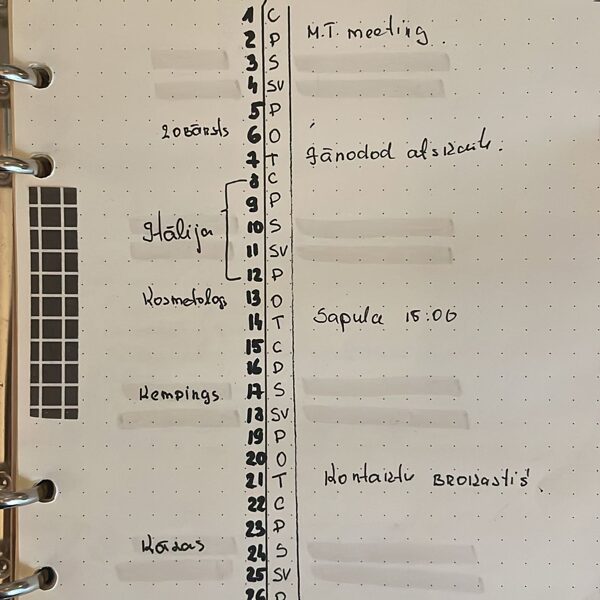 1 C
M.T. meeting
2 P
3 S
4 SV
5 P
zobārsts 6 O
7 T Jānodod atskait.
8 C
9 P
Itālija 10 S
11 SV
12 P
Kosmetologs 13 O
14 T Sapulce 15:00
15 C
16 P
Kempings 17 S
18 SV
19 P
20 O
21 T Kontaktu BROKASTIS
22 C
23 P
Kāzas 24 S
25 SV
26 P